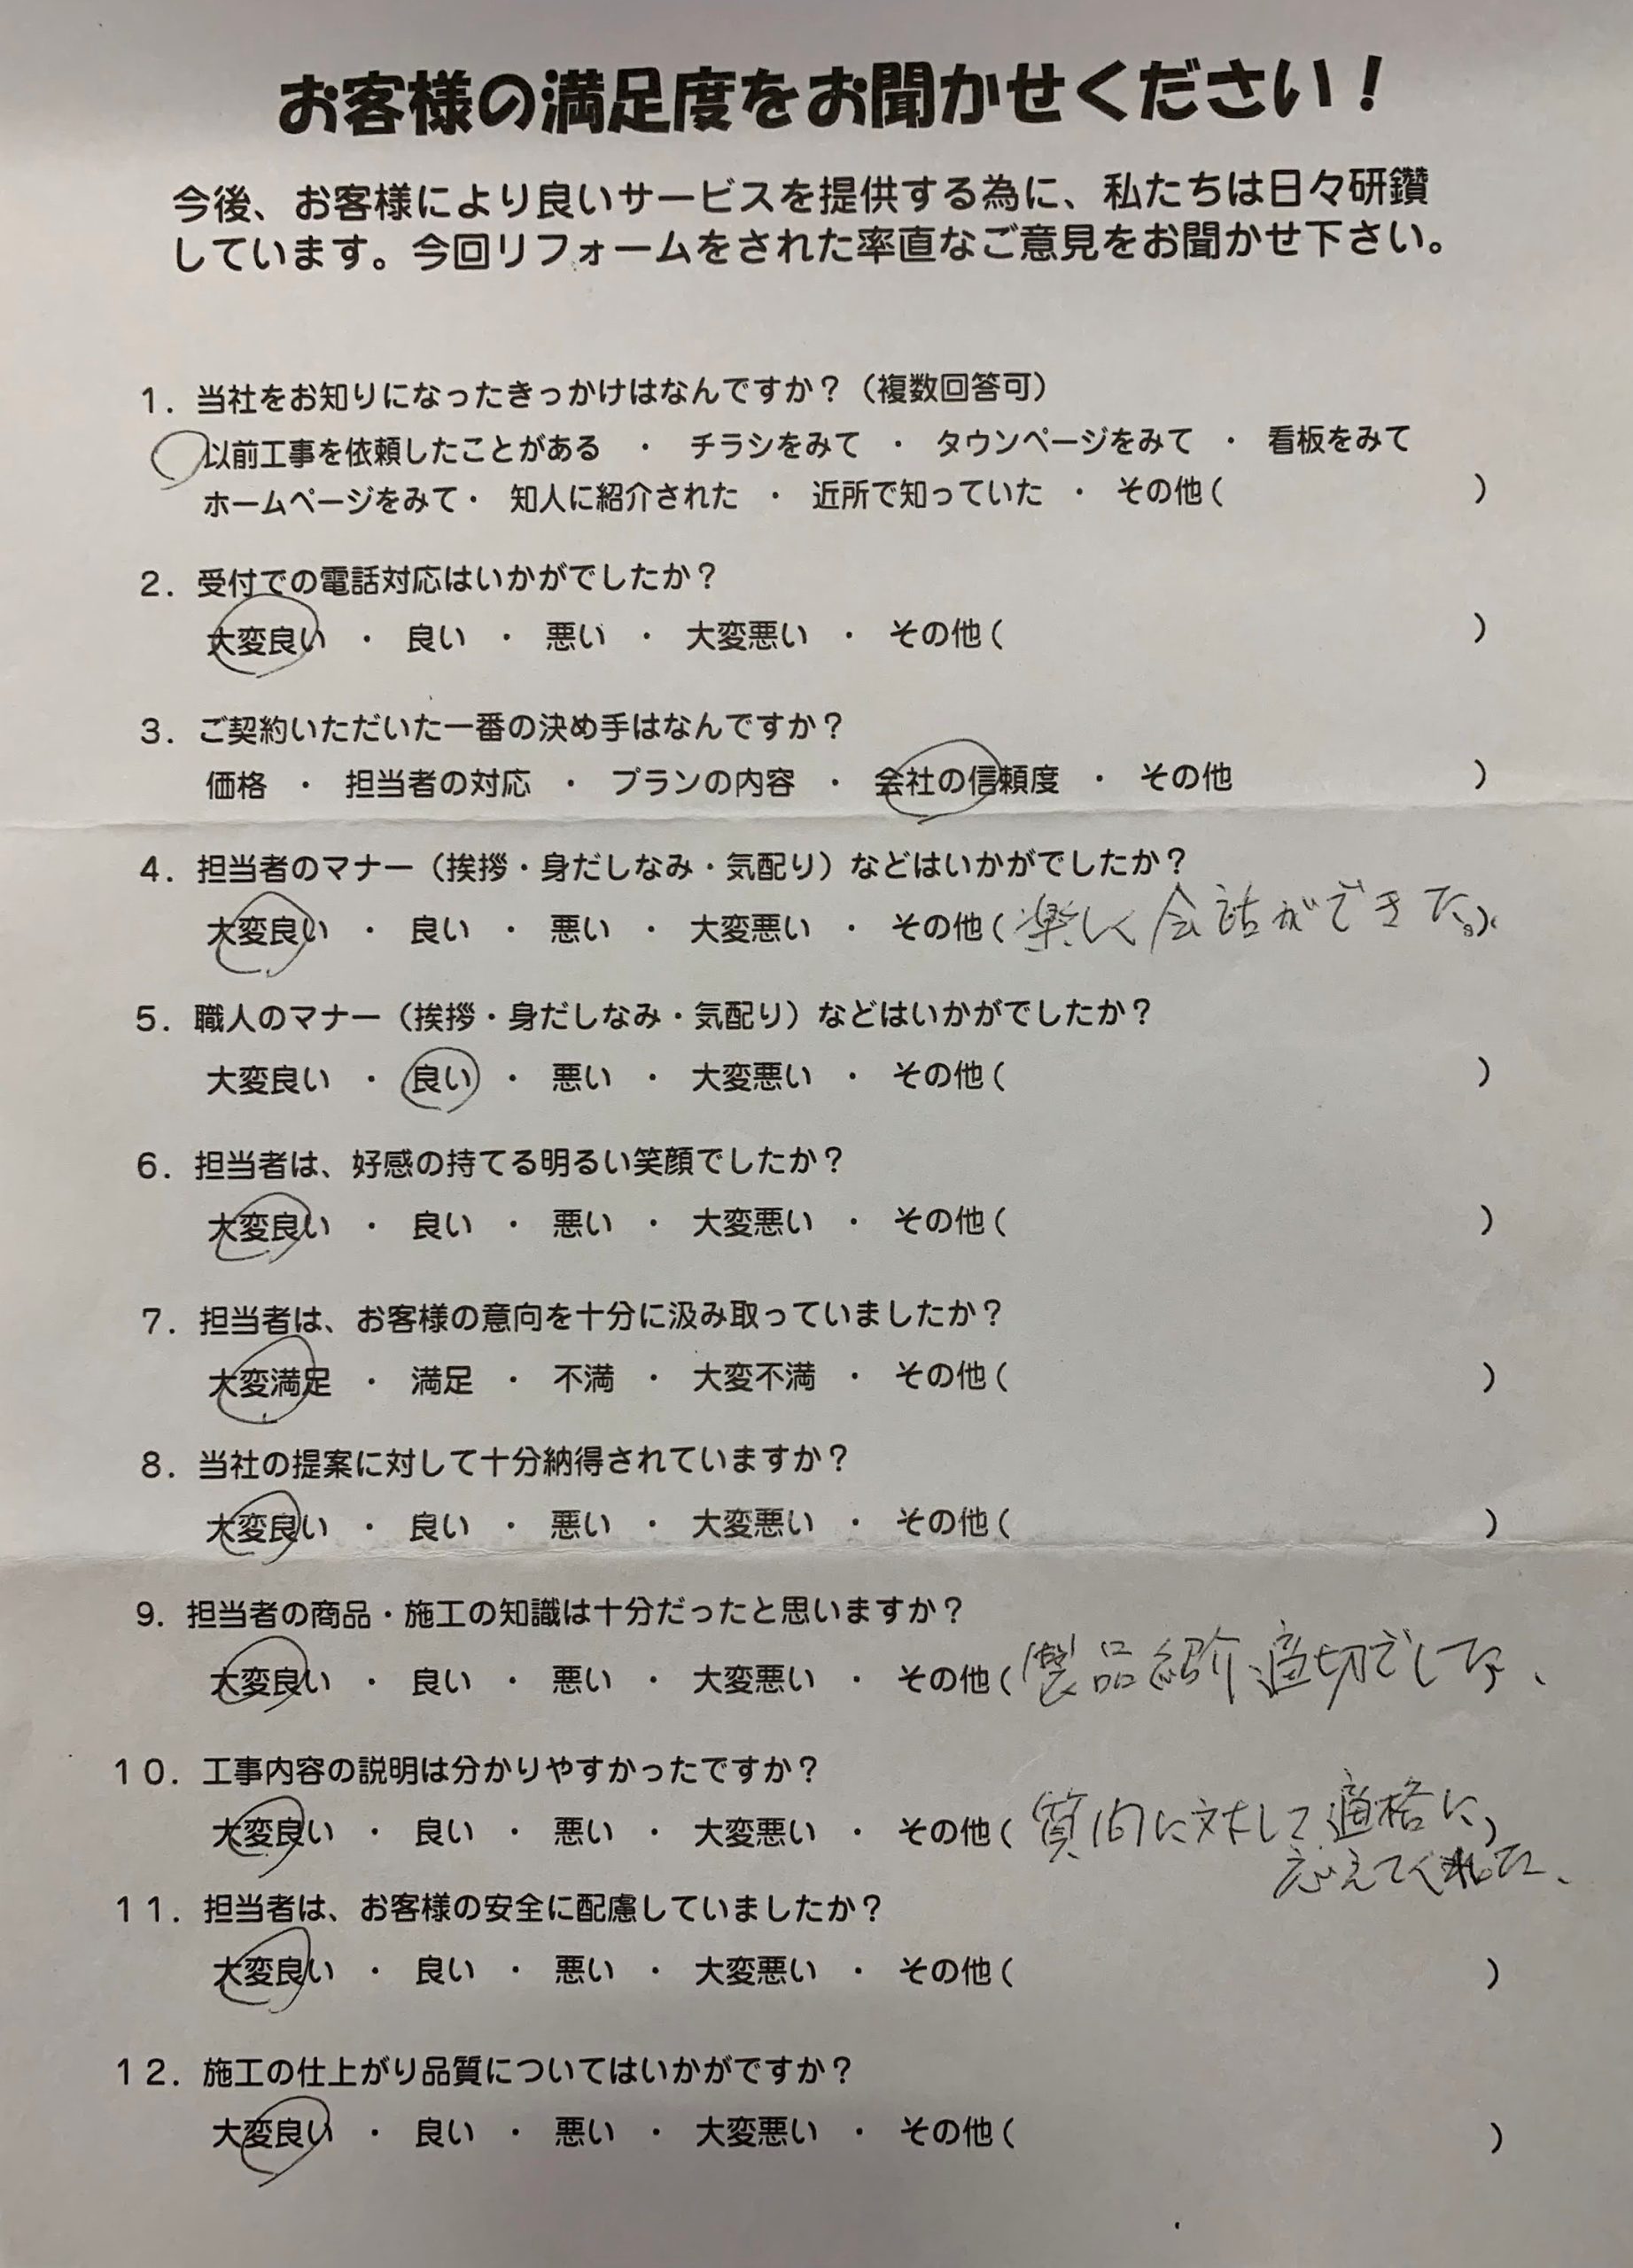 お客様の満足度をお聞かせください！
今後、お客様により良いサービスを提供する為に、私たちは日々研鑽
しています。今回リフォームをされた率直なご意見をお聞かせ下さい。
1．当社をお知りになったきっかけはなんですか？（複数回答可）
以前工事を依頼したことがある ・ チラシをみて ・ タウンページをみて ・ 看板をみて
ホームページをみて・ 知人に紹介された ・ 近所で知っていた ・ その他（ ）
2．受付での電話対応はいかがでしたか？
大変良い ・ 良い ・ 悪い ・ 大変悪い ・ その他（ ）
3．ご契約いただいた一番の決め手はなんですか？
価格 ・ 担当者の対応 ・ プランの内容 ・ 会社の信頼度 ・ その他 ）
4．担当者のマナー（挨拶・身だしなみ・気配り）などはいかがでしたか？
大変良い ・ 良い ・ 悪い ・ 大変悪い ・ その他（楽しく会話ができた。）
5．職人のマナー（挨拶・身だしなみ・気配り）などはいかがでしたか？
大変良い ・ 良い ・ 悪い ・ 大変悪い ・ その他（ ）
6．担当者は、好感の持てる明るい笑顔でしたか？
大変良い ・ 良い ・ 悪い ・ 大変悪い ・ その他（ ）
7．担当者は、お客様の意向を十分に汲み取っていましたか？
大変満足 ・ 満足 ・ 不満 ・ 大変不満 ・ その他（ ）
8．当社の提案に対して十分納得されていますか？
大変良い ・ 良い ・ 悪い ・ 大変悪い ・ その他（ ）
9．担当者の商品・施工の知識は十分だったと思いますか？
大変良い ・ 良い ・ 悪い ・ 大変悪い ・ その他（製品紹介適切でした、
10．工事内容の説明は分かりやすかったですか？
大変良い ・ 良い ・ 悪い ・ 大変悪い ・ その他（質問に対して適格に）
応えてくれた、
11．担当者は、お客様の安全に配慮していましたか？
大変良い ・ 良い ・ 悪い ・ 大変悪い ・ その他（ ）
12．施工の仕上がり品質についてはいかがですか？
大変良い ・ 良い ・ 悪い ・ 大変悪い ・ その他（ ）